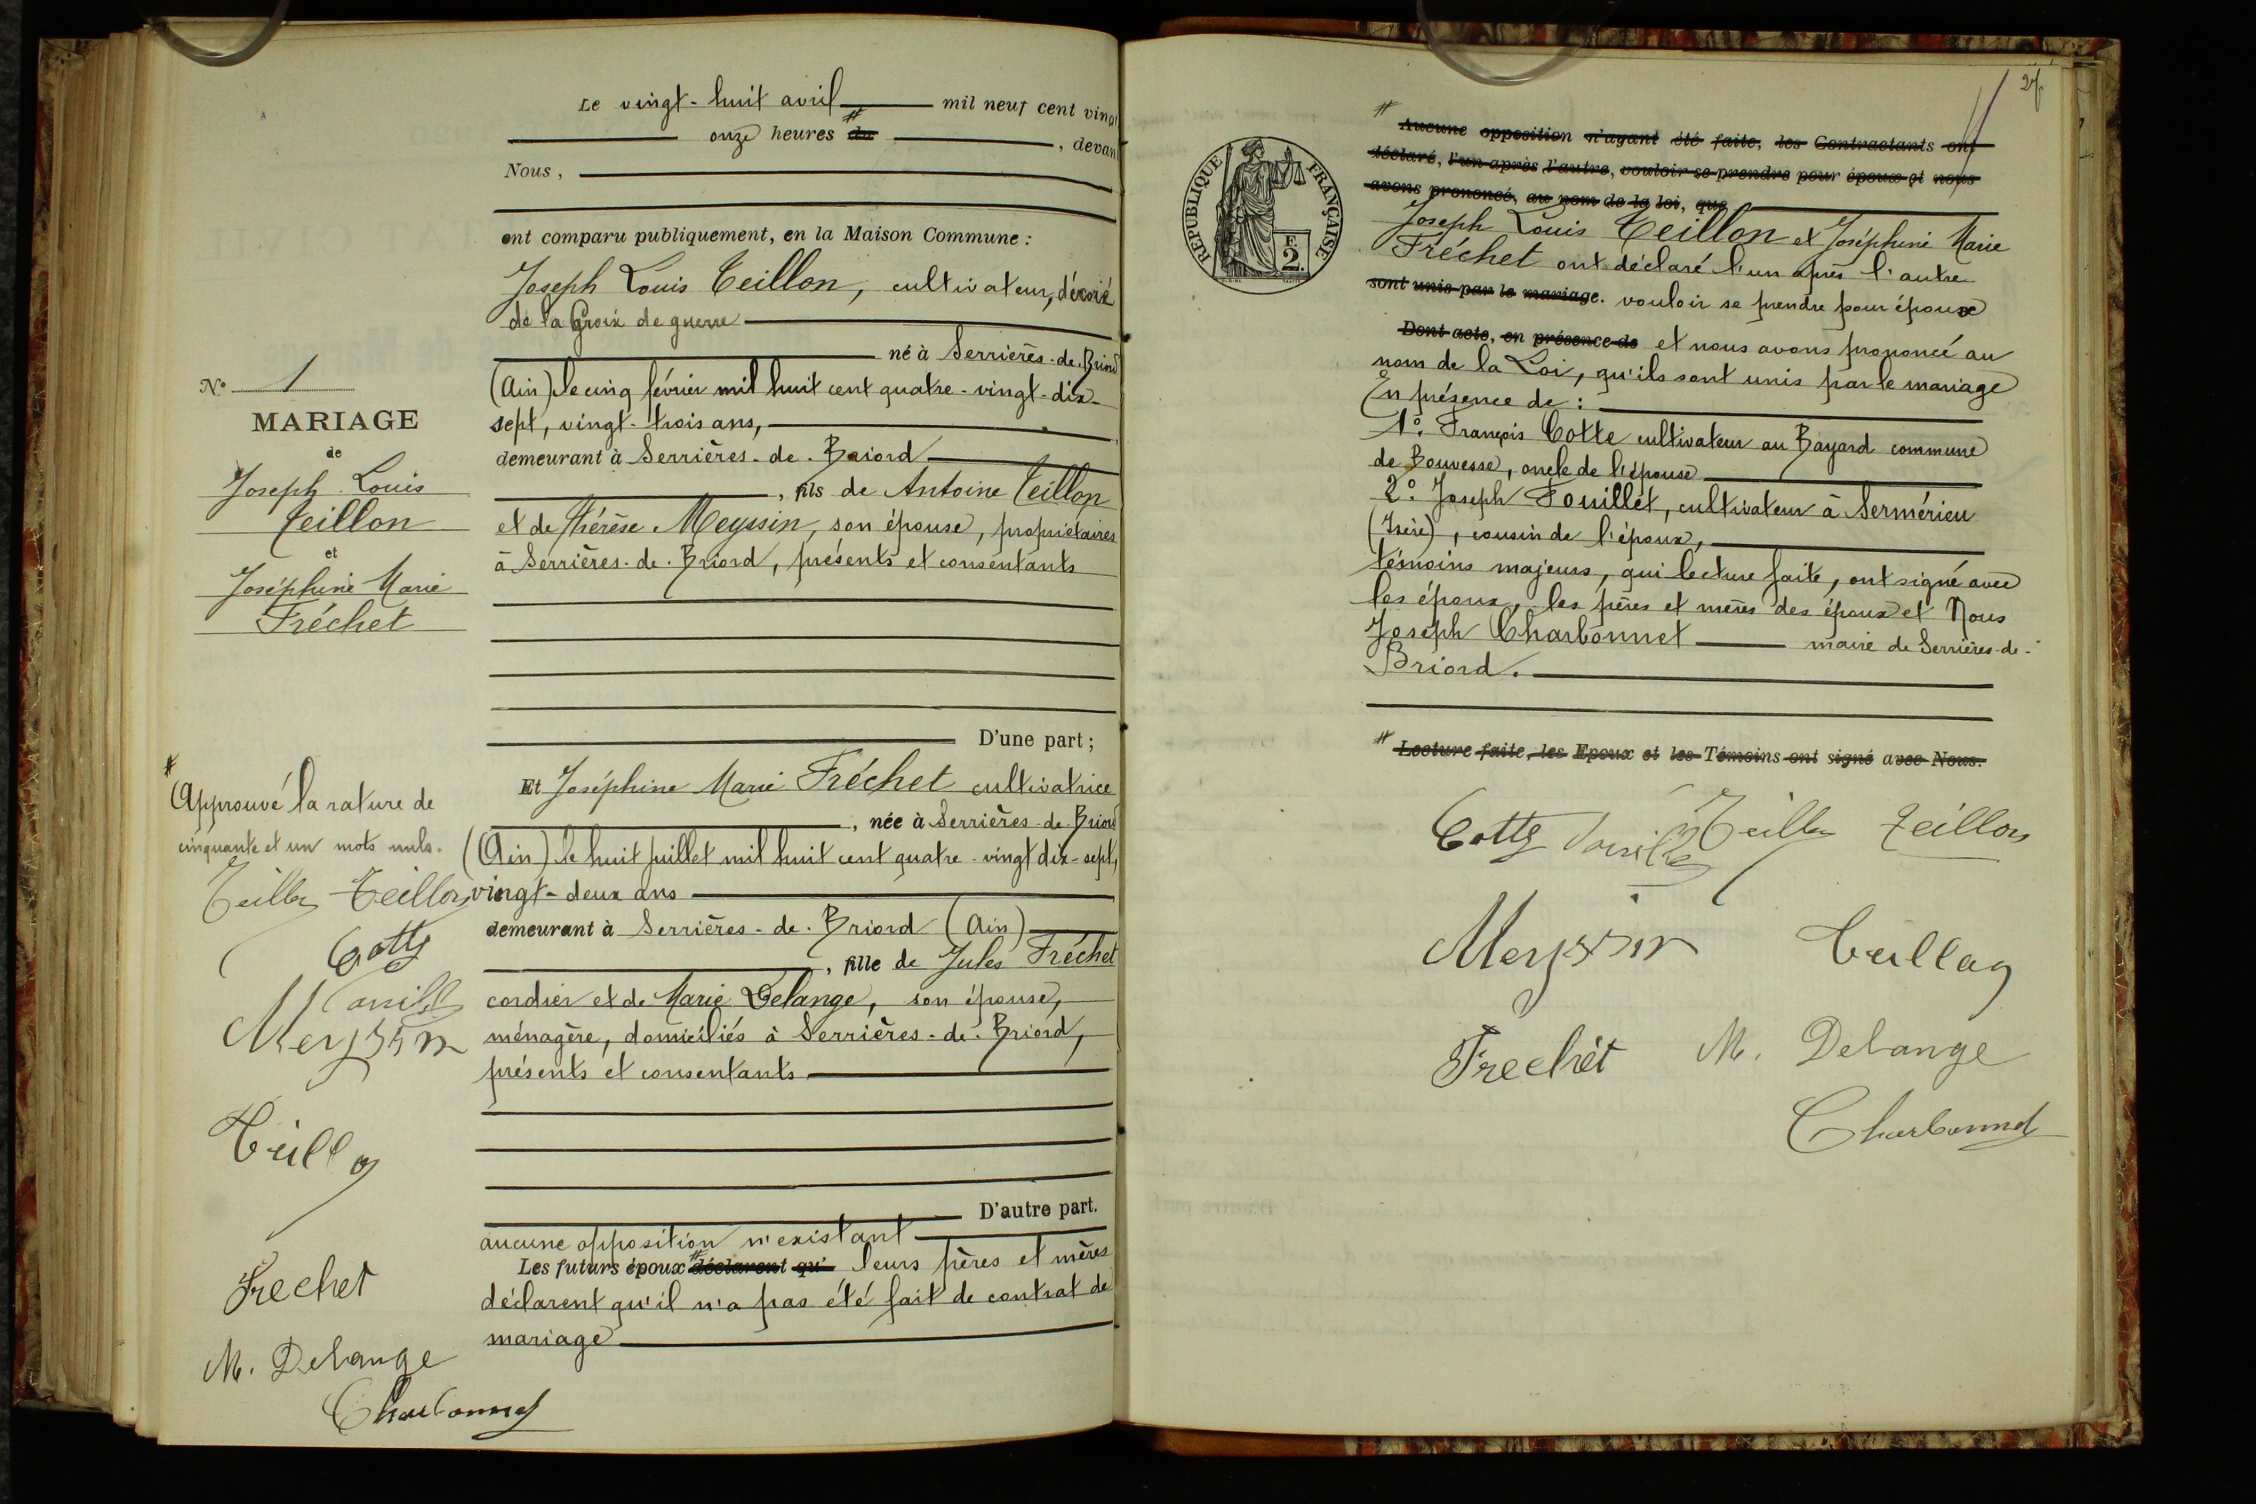 Le vingt-huit avril mil neuf cent vingt
onze heures du , devan
Nous,
ont comparu publiquement, en la Maison Commune :
Joseph Louis Teillon, cultivateur, décoré
de la Croix de guerre
né à Serrières-de-Briord
(Ain) le cinq février mil huit cent quatre-vingt-dix-
sept, vingt-trois ans,
demeurant à Serrières-de-Briord
, fils de Antoine Teillon
et de Thérèse Meyssin, son épouse, propriétaires
à Serrières-de-Briord, présents et consentants
D'une part ;
Et Joséphine Marie Fréchet cultivatrice
, née à Serrières-de-Briord
(Ain) le huit juillet mil huit cent quatre-vingt dix-sept,
vingt-deux ans
demeurant à Serrières-de-Briord (Ain)
, fille de Jules Fréchet
cordier et de Marie Delange, son épouse,
ménagère, domiciliés à Serrières-de-Briord,
présents et consentants
D'autre part.
aucune opposition n'existant
Les futurs époux # déclarent qu' leurs pères et mères
déclarent qu'il n'a pas été fait de contrat de
mariage
N° 1
MARIAGE
de
Joseph Louis
Teillon
et
Joséphine Marie
Fréchet
# Approuvé la rature de
cinquante et un mots nuls.
Teillon Teillon
Cotte
Meyssin
Teillon
Frechet
M. Delange
Charbonnet
27
# Aucune opposition n'ayant été faite, les Contractants ont
déclaré, l'un après l'autre, vouloir se prendre pour époux et nous
avons prononcé, au nom de la loi, que
Joseph Louis Teillon et Joséphine Marie
Fréchet ont déclaré l'un après l'autre
sont unis par le mariage. vouloir se prendre pour époux
Dont acte, en présence de et nous avons prononcé au
nom de la Loi, qu'ils sont unis par le mariage
En présence de :
1° François Cotte cultivateur au Bayard commune
de Bouvesse, oncle de l'épouse
2° Joseph Fouillet, cultivateur à Sermérieu
(Isère), cousin de l'époux,
témoins majeurs, qui lecture faite, ont signé avec
les époux, les pères et mères des époux et Nous
Joseph Charbonnet maire de Serrières-de-
Briord.
# Lecture faite, les Epoux et les Témoins ont signé avec Nous.
RÉPUBLIQUE FRANÇAISE
F.
2.
Cotte Teillon Teillon
Meyssin Teillon
Frechet M. Delange
Charbonnet